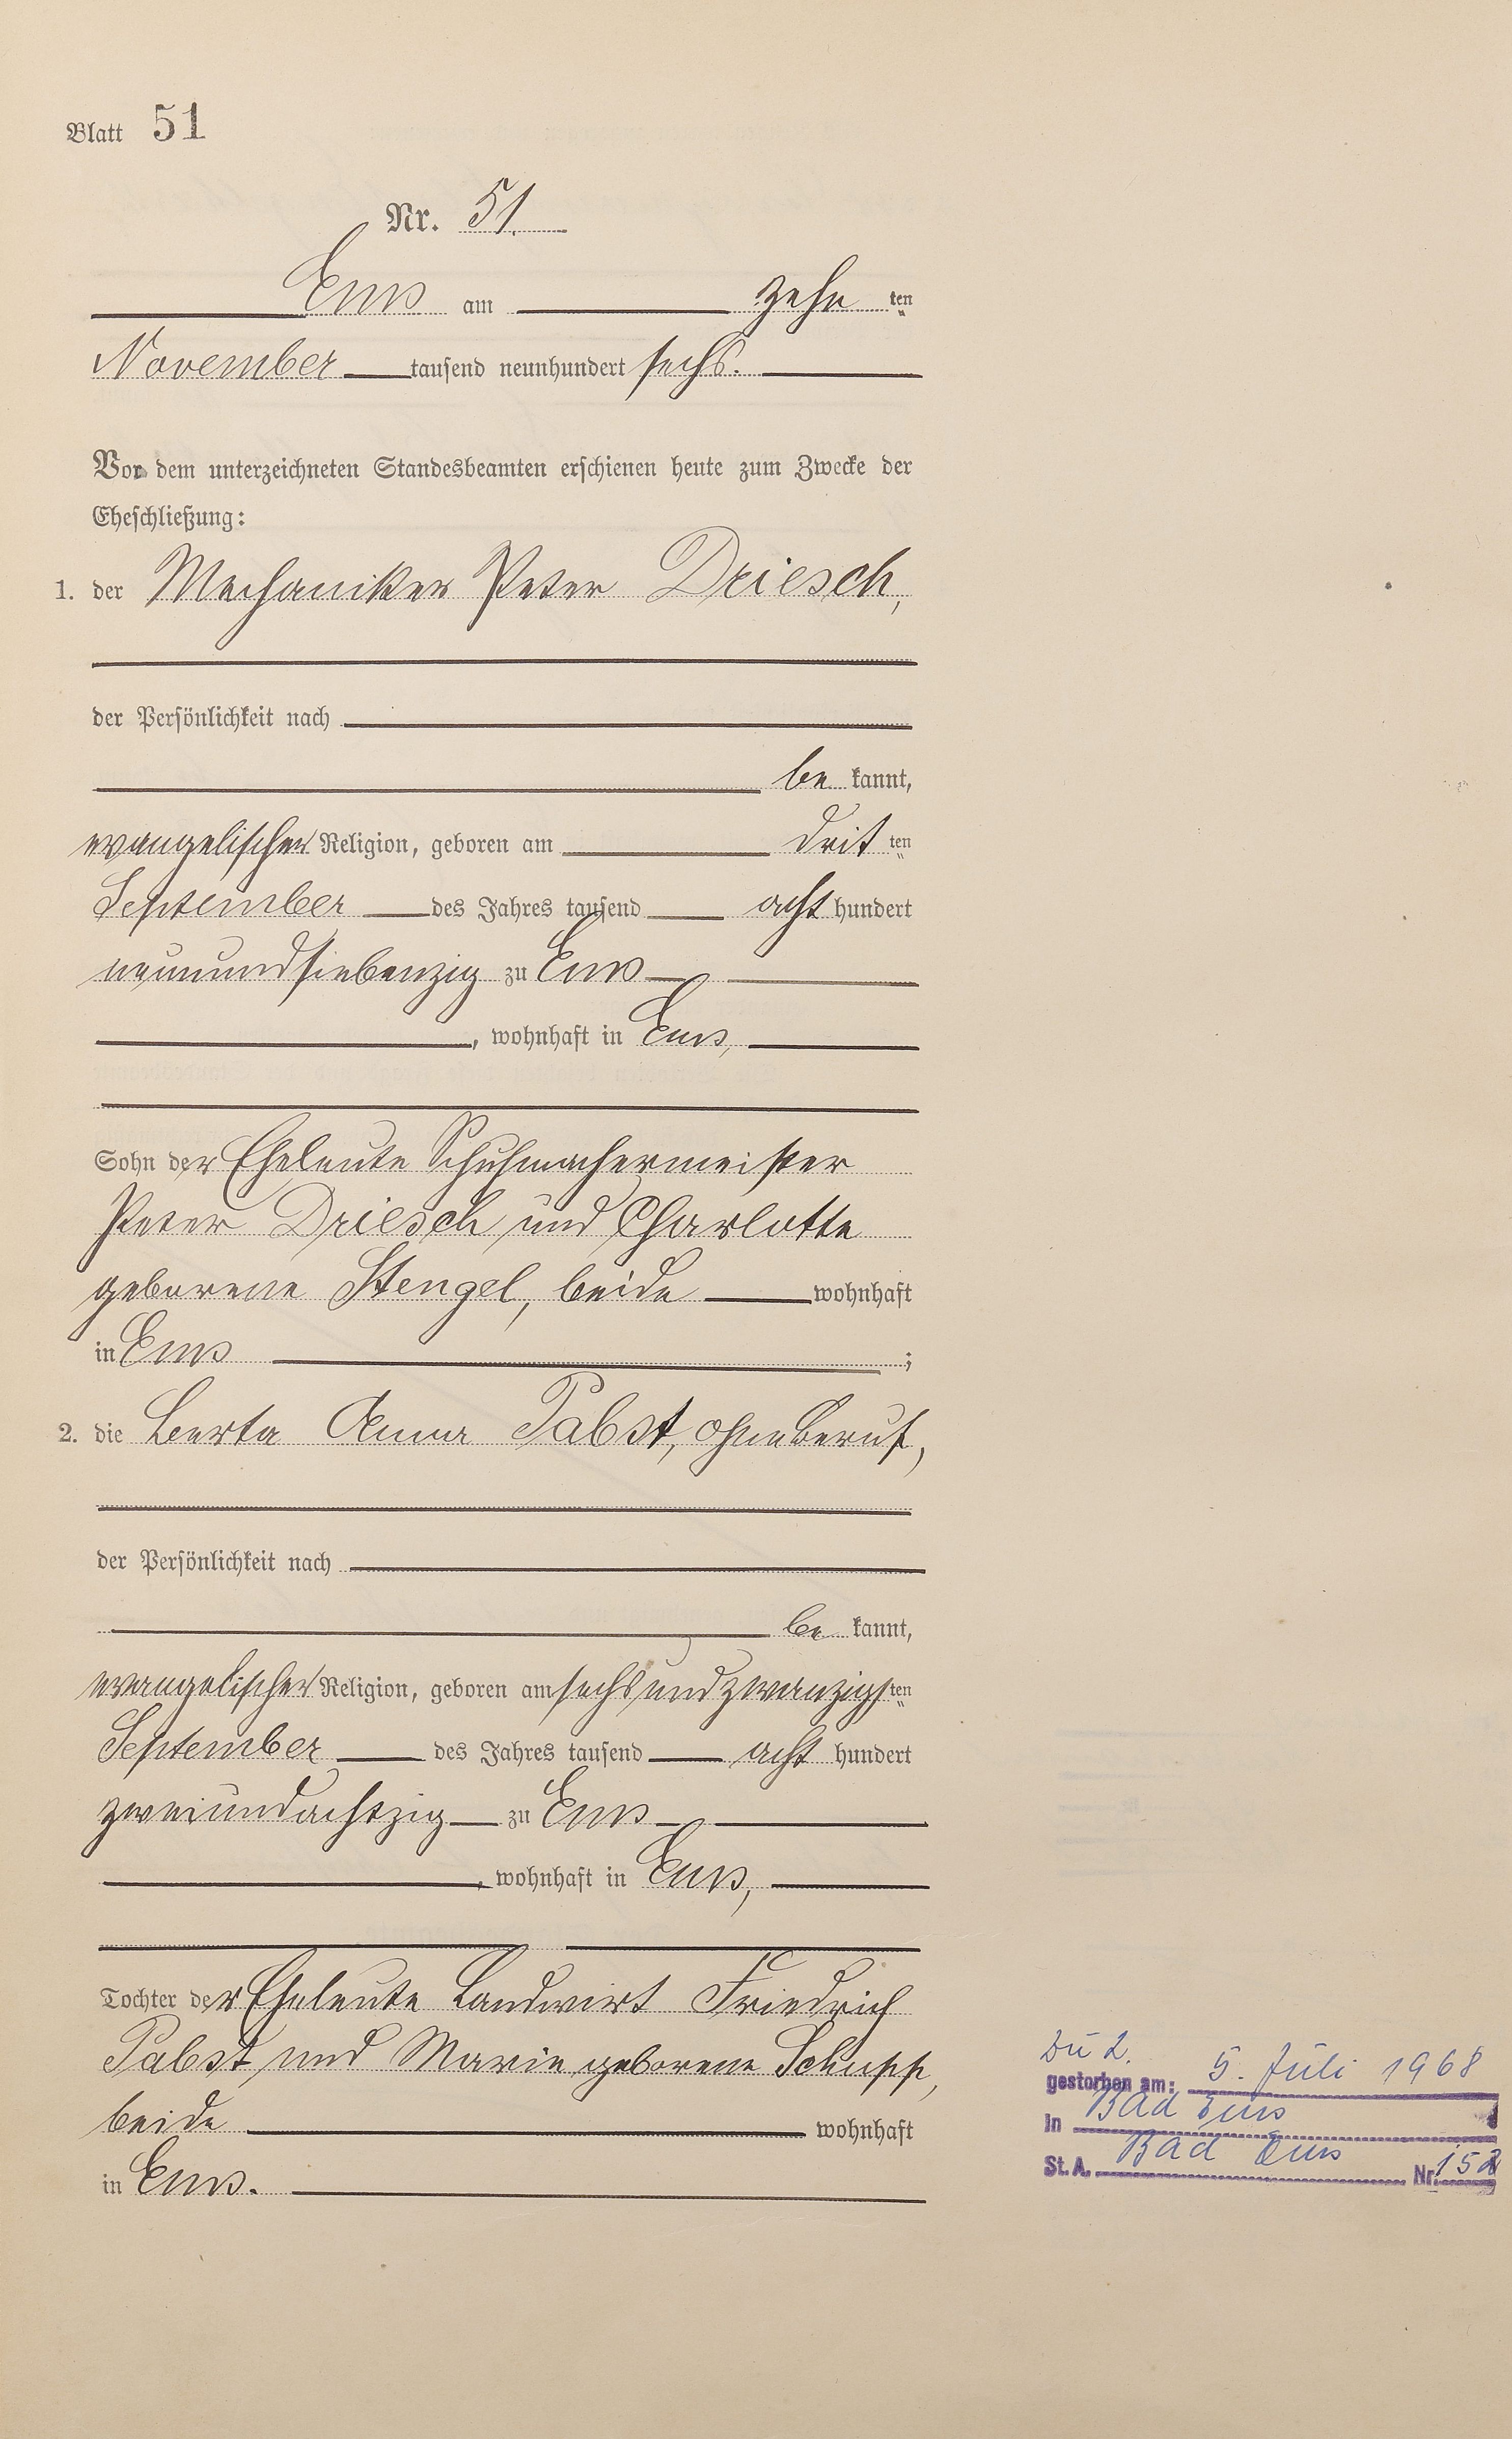 Blatt 51
Nr. 51.
Ems am zehn ten
November tausend neunhundert sechs.
Vor dem unterzeichneten Standesbeamten erschienen heute zum Zwecke der
Eheschließung:
1. der Mechaniker Peter Driesch,
der Persönlichkeit nach
be kannt,
evangelischer Religion, geboren am drit ten
September des Jahres tausend acht hundert
neunundsiebenzig zu Ems
, wohnhaft in Ems,
Sohn der Eheleute Schuhmachermeister
Peter Driesch und Charlotte
geborene Stengel, beide wohnhaft
in Ems ;
2. die Berta Anna Pabst, ohne Beruf,
der Persönlichkeit nach
be kannt,
evangelischer Religion, geboren am sechsundzwanzigsten
September des Jahres tausend acht hundert
zweiundachtzig zu Ems
, wohnhaft in Ems,
Tochter der Eheleute Landwirt Friedrich
Pabst und Marie geborene Schupp,
beide wohnhaft
in Ems.
Zu 2.
gestorben am: 5. Juli 1968
in Bad Ems
St. A. Bad Ems Nr. 152